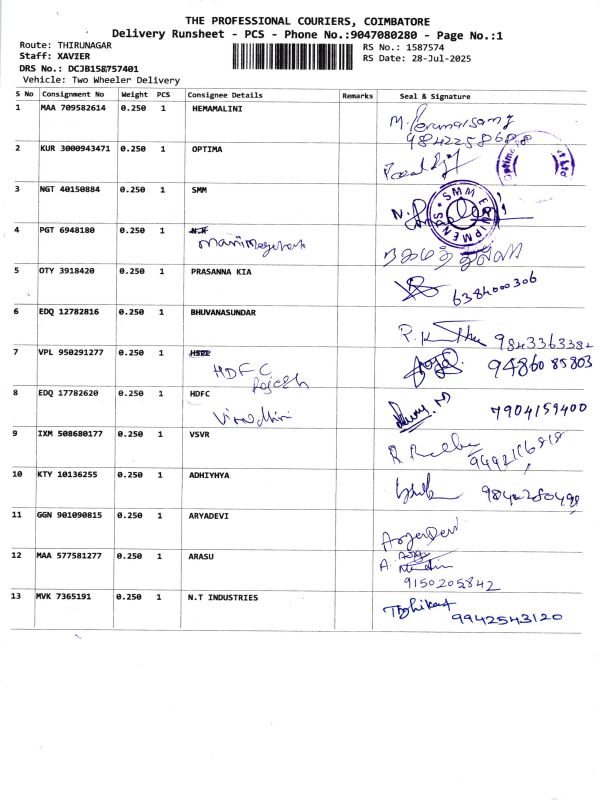 THE PROFESSIONAL COURIERS, COIMBATORE
Delivery Runsheet - PCS - Phone No.:9047080280 - Page No.:1
Route: THIRUNAGAR
RS No.: 1587574
Staff: XAVIER
RS Date: 28-Jul-2025
DRS No.: DCJB158757401
Vehicle: Two Wheeler Delivery
S No Consignment No Weight PCS Consignee Details Remarks Seal & Signature
1 MAA 709582614 0.250 1 HEMAMALINI
9842258688
2 KUR 3000943471 0.250 1 OPTIMA
Optima
3 NGT 40150884 0.250 1 SMM
SMM EQUIPMENTS
4 PGT 6948180 0.250 1
5 OTY 3918420 0.250 1 PRASANNA KIA
6384000306
6 EDQ 12782816 0.250 1 BHUVANASUNDAR
9843363382
7 VPL 950291277 0.250 1
HDFC
Rajesh
9486085803
8 EDQ 17782620 0.250 1 HDFC
7904159400
9 IXM 508680177 0.250 1 VSVR
10 KTY 10136255 0.250 1 ADHIYHYA
11 GGN 901090815 0.250 1 ARYADEVI
12 MAA 577581277 0.250 1 ARASU
9150205842
13 MVK 7365191 0.250 1 N.T INDUSTRIES
9942543120